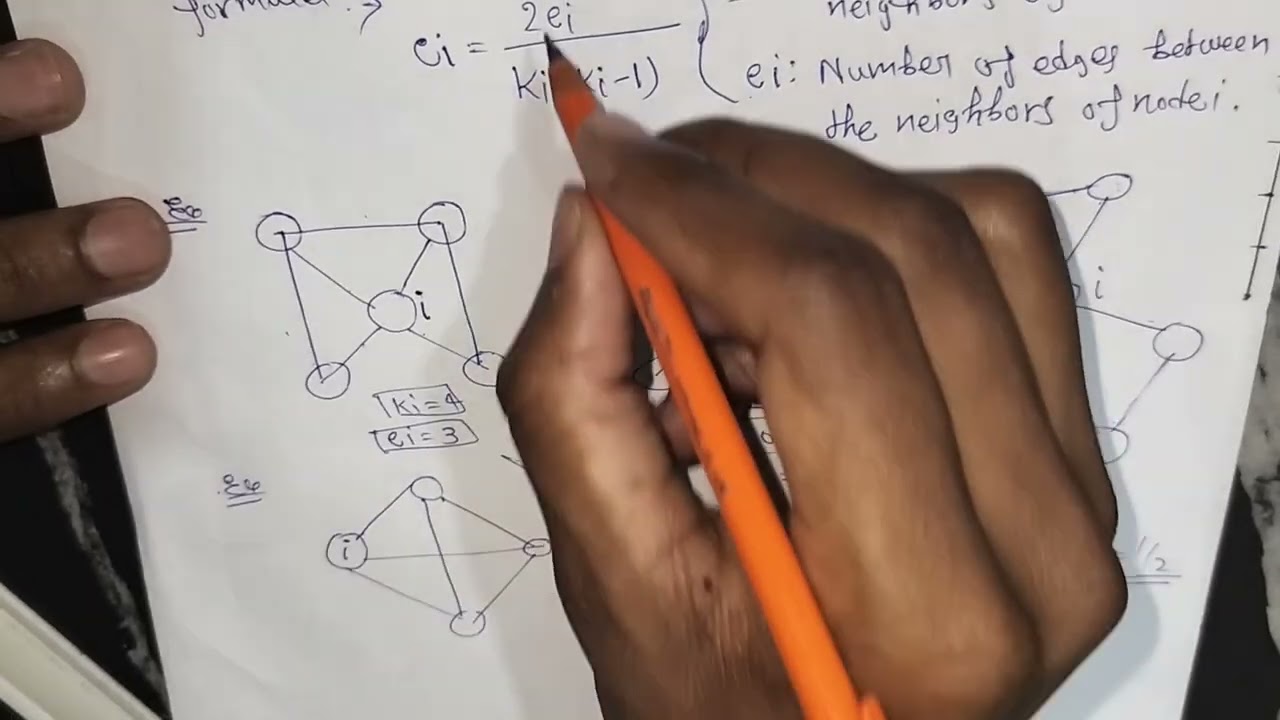 formula :→
neighbors of
ei = 2ei
ki (ki-1)
ei: Number of edges between
the neighbors of node i.
Ex
i
i
ki=4
ei=3
Ex
i
1/2